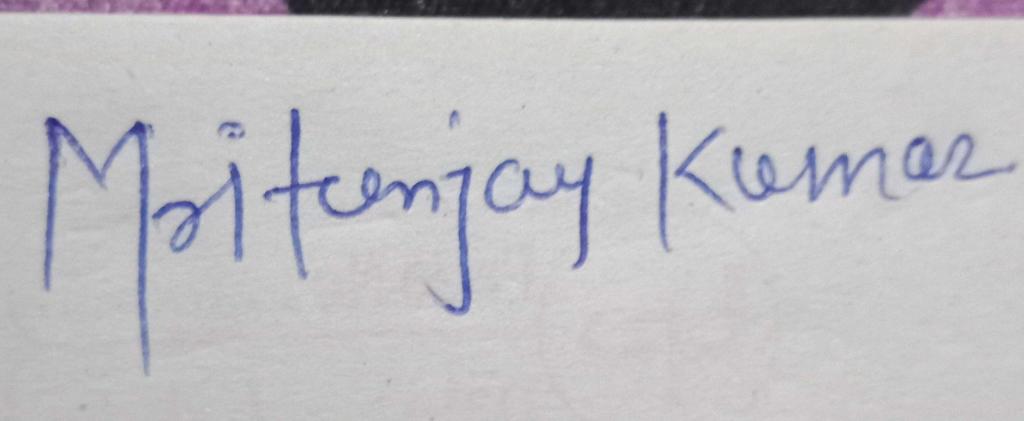 Mritunjay Kumar